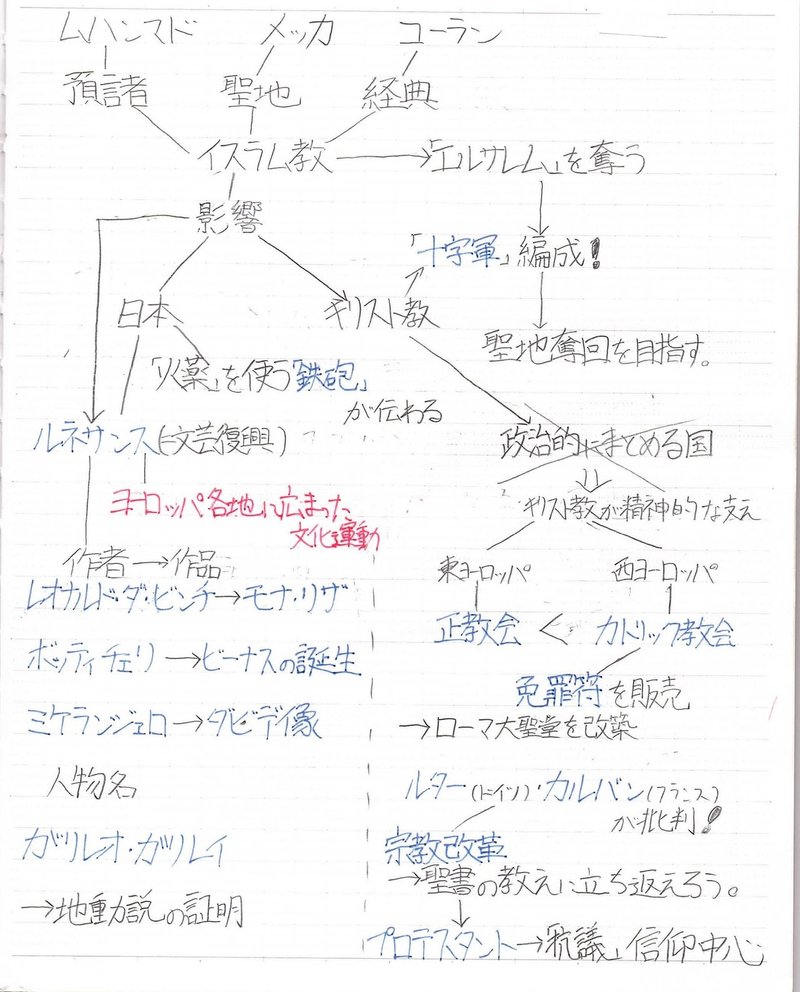 ムハンマド メッカ コーラン
預諸者 聖地 経典
イスラム教 →「エルサレム」を奪う
影響
「十字軍」編成!
日本 キリスト教
聖地奪回を目指す。
「火薬」を使う「鉄砲」
が伝わる
ルネサンス(文芸復興)
政治的にまとめる国
⇓
ヨーロッパ各地に広まった
文化運動
キリスト教が精神的な支え
作者→作品
東ヨーロッパ 西ヨーロッパ
レオナルド・ダ・ビンチ→モナ・リザ
正教会 < カトリック教会
ボッティチェリ→ビーナスの誕生
免罪符を販売
ミケランジェロ→ダビデ像
→ローマ大聖堂を改築
人物名
ルター(ドイツ)・カルバン(フランス)
が批判!
ガリレオ・ガリレイ
宗教改革
→聖書の教えに立ち返えろう。
→地動説の証明
プロテスタント→「抗議」信仰中心